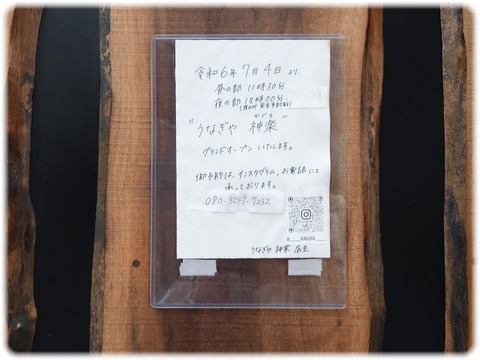 令和6年7月4日より、
昼の部 11時30分
夜の部 18時00分
かぐら
"うなぎや 神楽"
グランドオープンいたします。
御予約は、インスタグラム、お電話にて
承っております。
080-3249-7232
うなぎや 神楽 店主